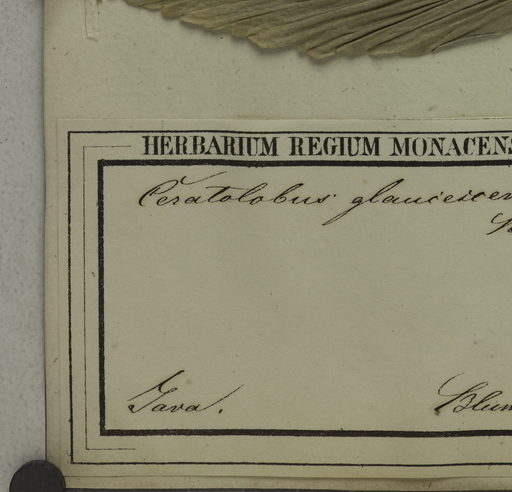 HERBARIUM REGIUM MONACENS
Ceratolobus glaucescen
Java. Blum